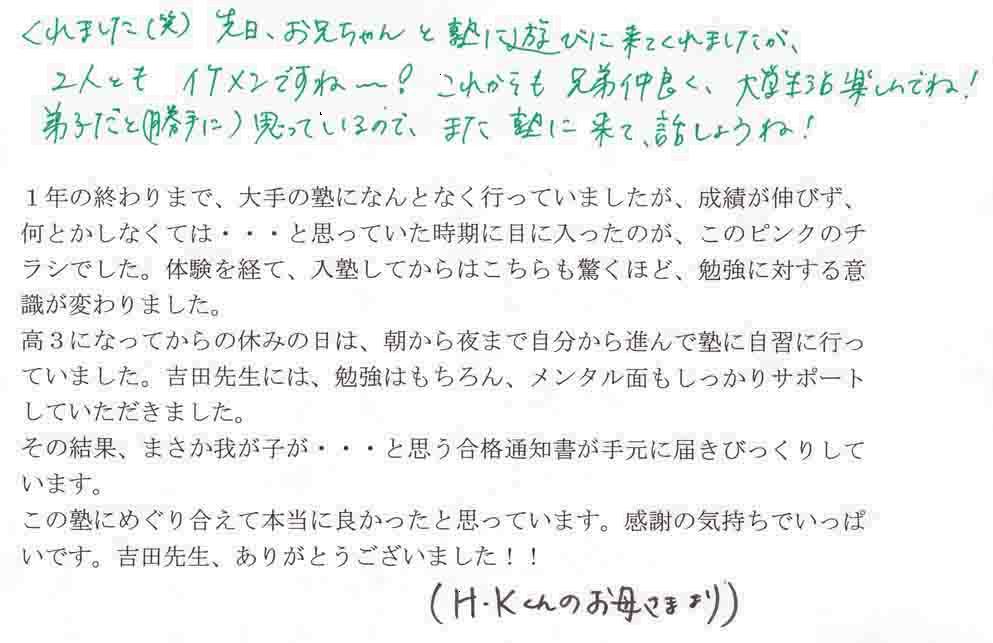 くれました(笑) 先日、お兄ちゃんと塾に遊びに来てくれましたが、
2人とも イケメンですね〜! これからも 兄弟仲良く、大学生活楽しんでね!
弟子だと(勝手に)思っているので、また 塾に 来て、話しましょうね!
1年の終わりまで、大手の塾になんとなく行っていましたが、成績が伸びず、
何とかしなくては・・・と思っていた時期に目に入ったのが、このピンクのチ
ラシでした。体験を経て、入塾してからはこちらも驚くほど、勉強に対する意
識が変わりました。
高3になってからの休みの日は、朝から夜まで自分から進んで塾に自習に行っ
ていました。吉田先生には、勉強はもちろん、メンタル面もしっかりサポート
していただきました。
その結果、まさか我が子が・・・と思う合格通知書が手元に届きびっくりして
います。
この塾にめぐり合えて本当に良かったと思っています。感謝の気持ちでいっぱ
いです。吉田先生、ありがとうございました!!
(H・Kくんのお母さまより)